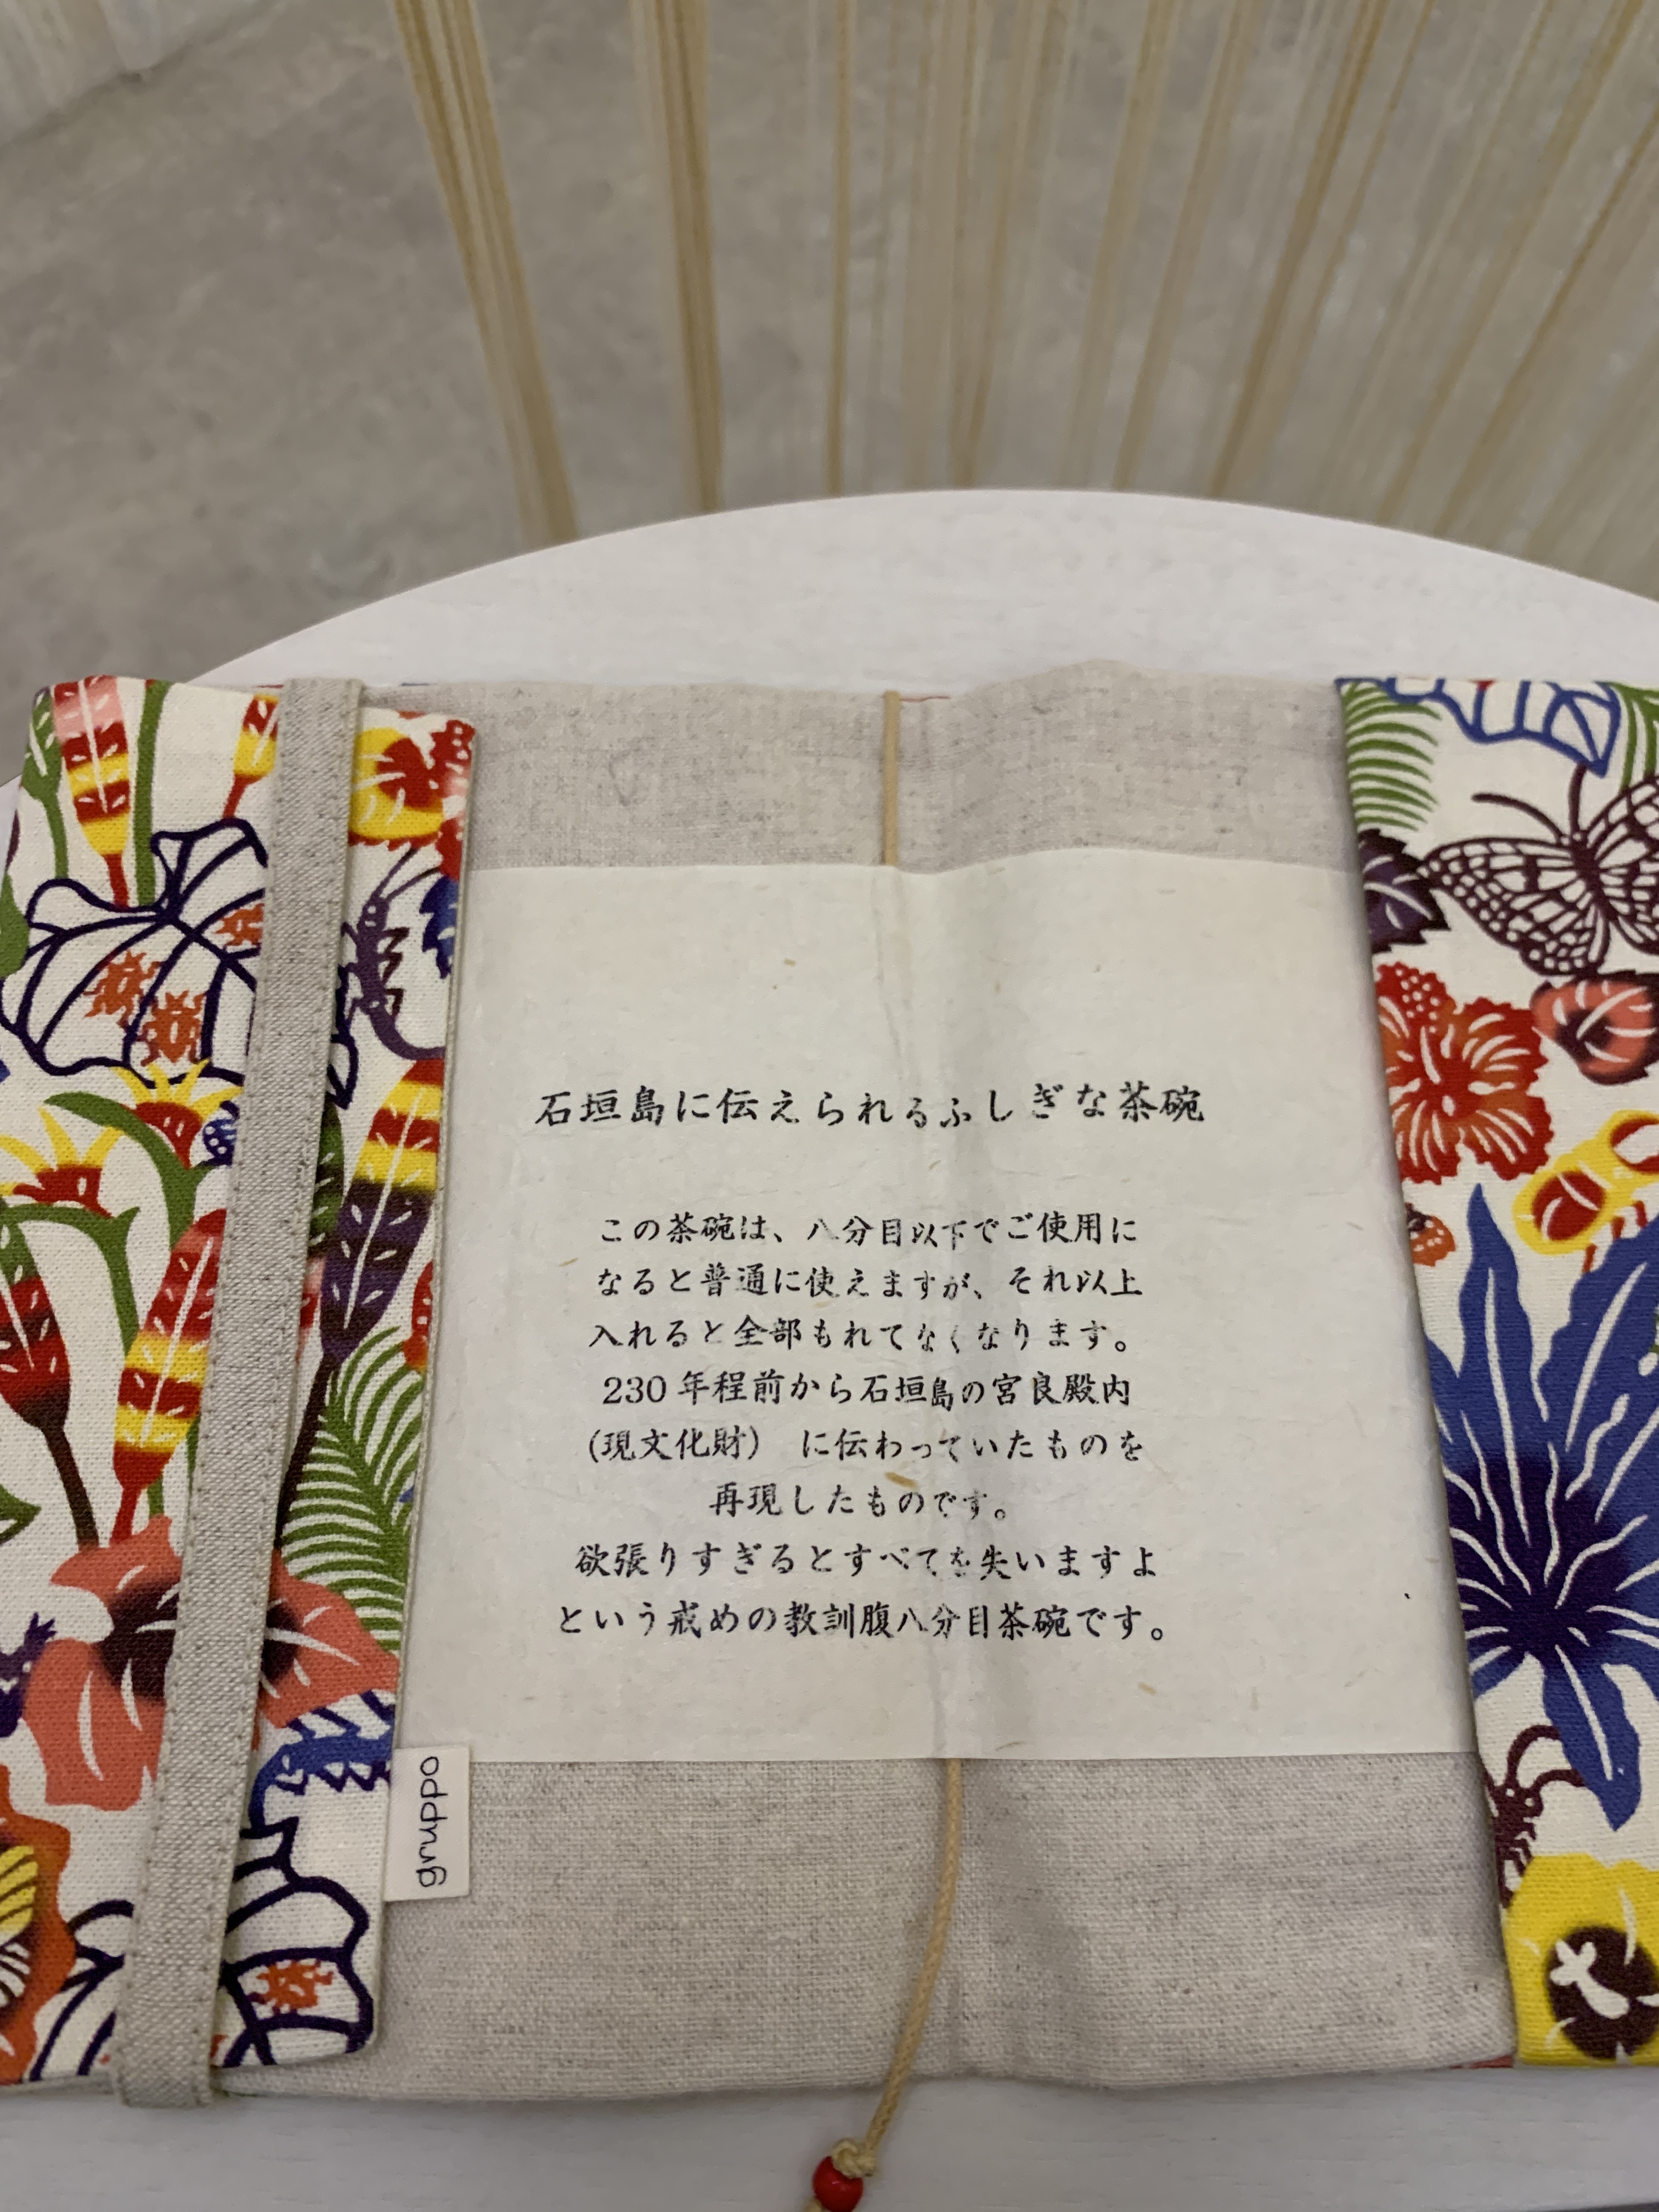 石垣島に伝えられるふしぎな茶碗
この茶碗は、八分目以下でご使用に
なると普通に使えますが、それ以上
入れると全部もれてなくなります。
230年程前から石垣島の宮良殿内
(現文化財) に伝わっていたものを
再現したものです。
欲張りすぎるとすべてを失いますよ
という戒めの教訓腹八分目茶碗です。
gruppo